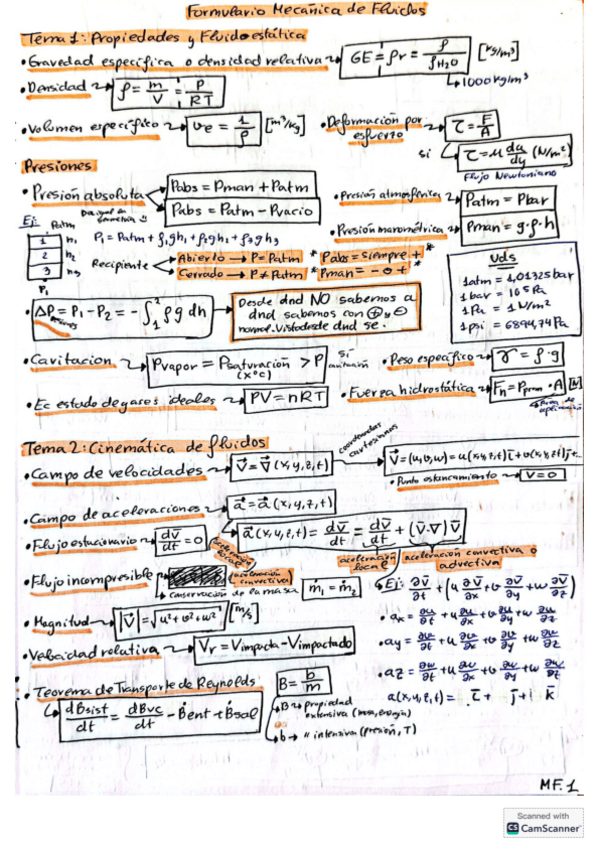 Formulario Mecánica de Fluidos
Tema 1: Propiedades y Fluidoestática
• Gravedad específica o densidad relativa → GE = ρr = ρ / ρH2O [kg/m³]
↳ 1000 kg/m³
• Densidad → ρ = m/V = P/RT
• Volumen específico → ve = 1/ρ [m³/kg] • Deformación por esfuerzo → τ = F/A
si τ = μ du/dy (N/m²)
Flujo Newtoniano
Presiones
• Presión absoluta Pabs = Pman + Patm
Pabs = Patm - Pvacio
• Presión atmosférica → Patm = Pbar
• Presión manométrica → Pman = g·ρ·h
Ej: Patm
1 h1
2 h2
3 h3
P1
P1 = Patm + ρ1gh1 + ρ2gh2 + ρ3gh3
Recipiente Abierto → P = Patm * Pabs = siempre + *
Cerrado → P ≠ Patm * Pman = - 0 + *
Uds
1atm = 1,01325 bar
1 bar = 10⁵ Pa
1 Pa = 1 N/m²
1 psi = 6894,74 Pa
• ΔP = P1 - P2 = - ∫₁² ρg dh
Desde dnd NO sabemos a
dnd sabemos con ⊕ y ⊖
normal. vista desde dnd se.
• Cavitacion → Pvapor = Psaturación > P
(xºC)
Si cavitación
• Peso específico → γ = ρ·g
• Ec estado de gases ideales → PV = nRT
• Fuerza hidrostática → Fn = Pprom · A [N]
Tema 2: Cinemática de fluidos
• Campo de velocidades → V⃗ = V⃗ (x,y,z,t)
coordenadas cartesianas
V⃗ = (u,v,w) = u(x,y,z,t)i⃗ + v(x,y,z,t)j⃗+...
• Punto estancamiento → V = 0
• Campo de aceleraciones → a⃗ = a⃗ (x,y,z,t)
a⃗ (x,y,z,t) = dv⃗/dt = dv⃗/dt + (V⃗·∇) V⃗
• Flujo estacionario → dv⃗/dt = 0
aceleración local
aceleración convectiva
aceleración local
aceleración convectiva o advectiva
• Flujo incompresible
conservación de la masa ṁ1 = ṁ2
• Ej: ∂V⃗/∂t + (u ∂V⃗/∂x + v ∂V⃗/∂y + w ∂V⃗/∂z)
• Magnitud → |V⃗| = √u² + v² + w² [m/s]
• ax = ∂u/∂t + u ∂u/∂x + v ∂u/∂y + w ∂u/∂z
• ay = ∂v/∂t + u ∂v/∂x + v ∂v/∂y + w ∂v/∂z
• Velocidad relativa → V⃗r = Vimpacta - Vimpactado
• az = ∂w/∂t + u ∂w/∂x + v ∂w/∂y + w ∂w/∂z
a(x,y,z,t) = i⃗ + j⃗ + k⃗
• Teorema de Transporte de Reynolds
B = b/m
dBsist/dt = dBvc/dt - Ḃent + Ḃsal
B → propiedad
extensiva (masa, energía)
b → " intensiva (presión, T)
MF. 1
Scanned with
CS CamScanner